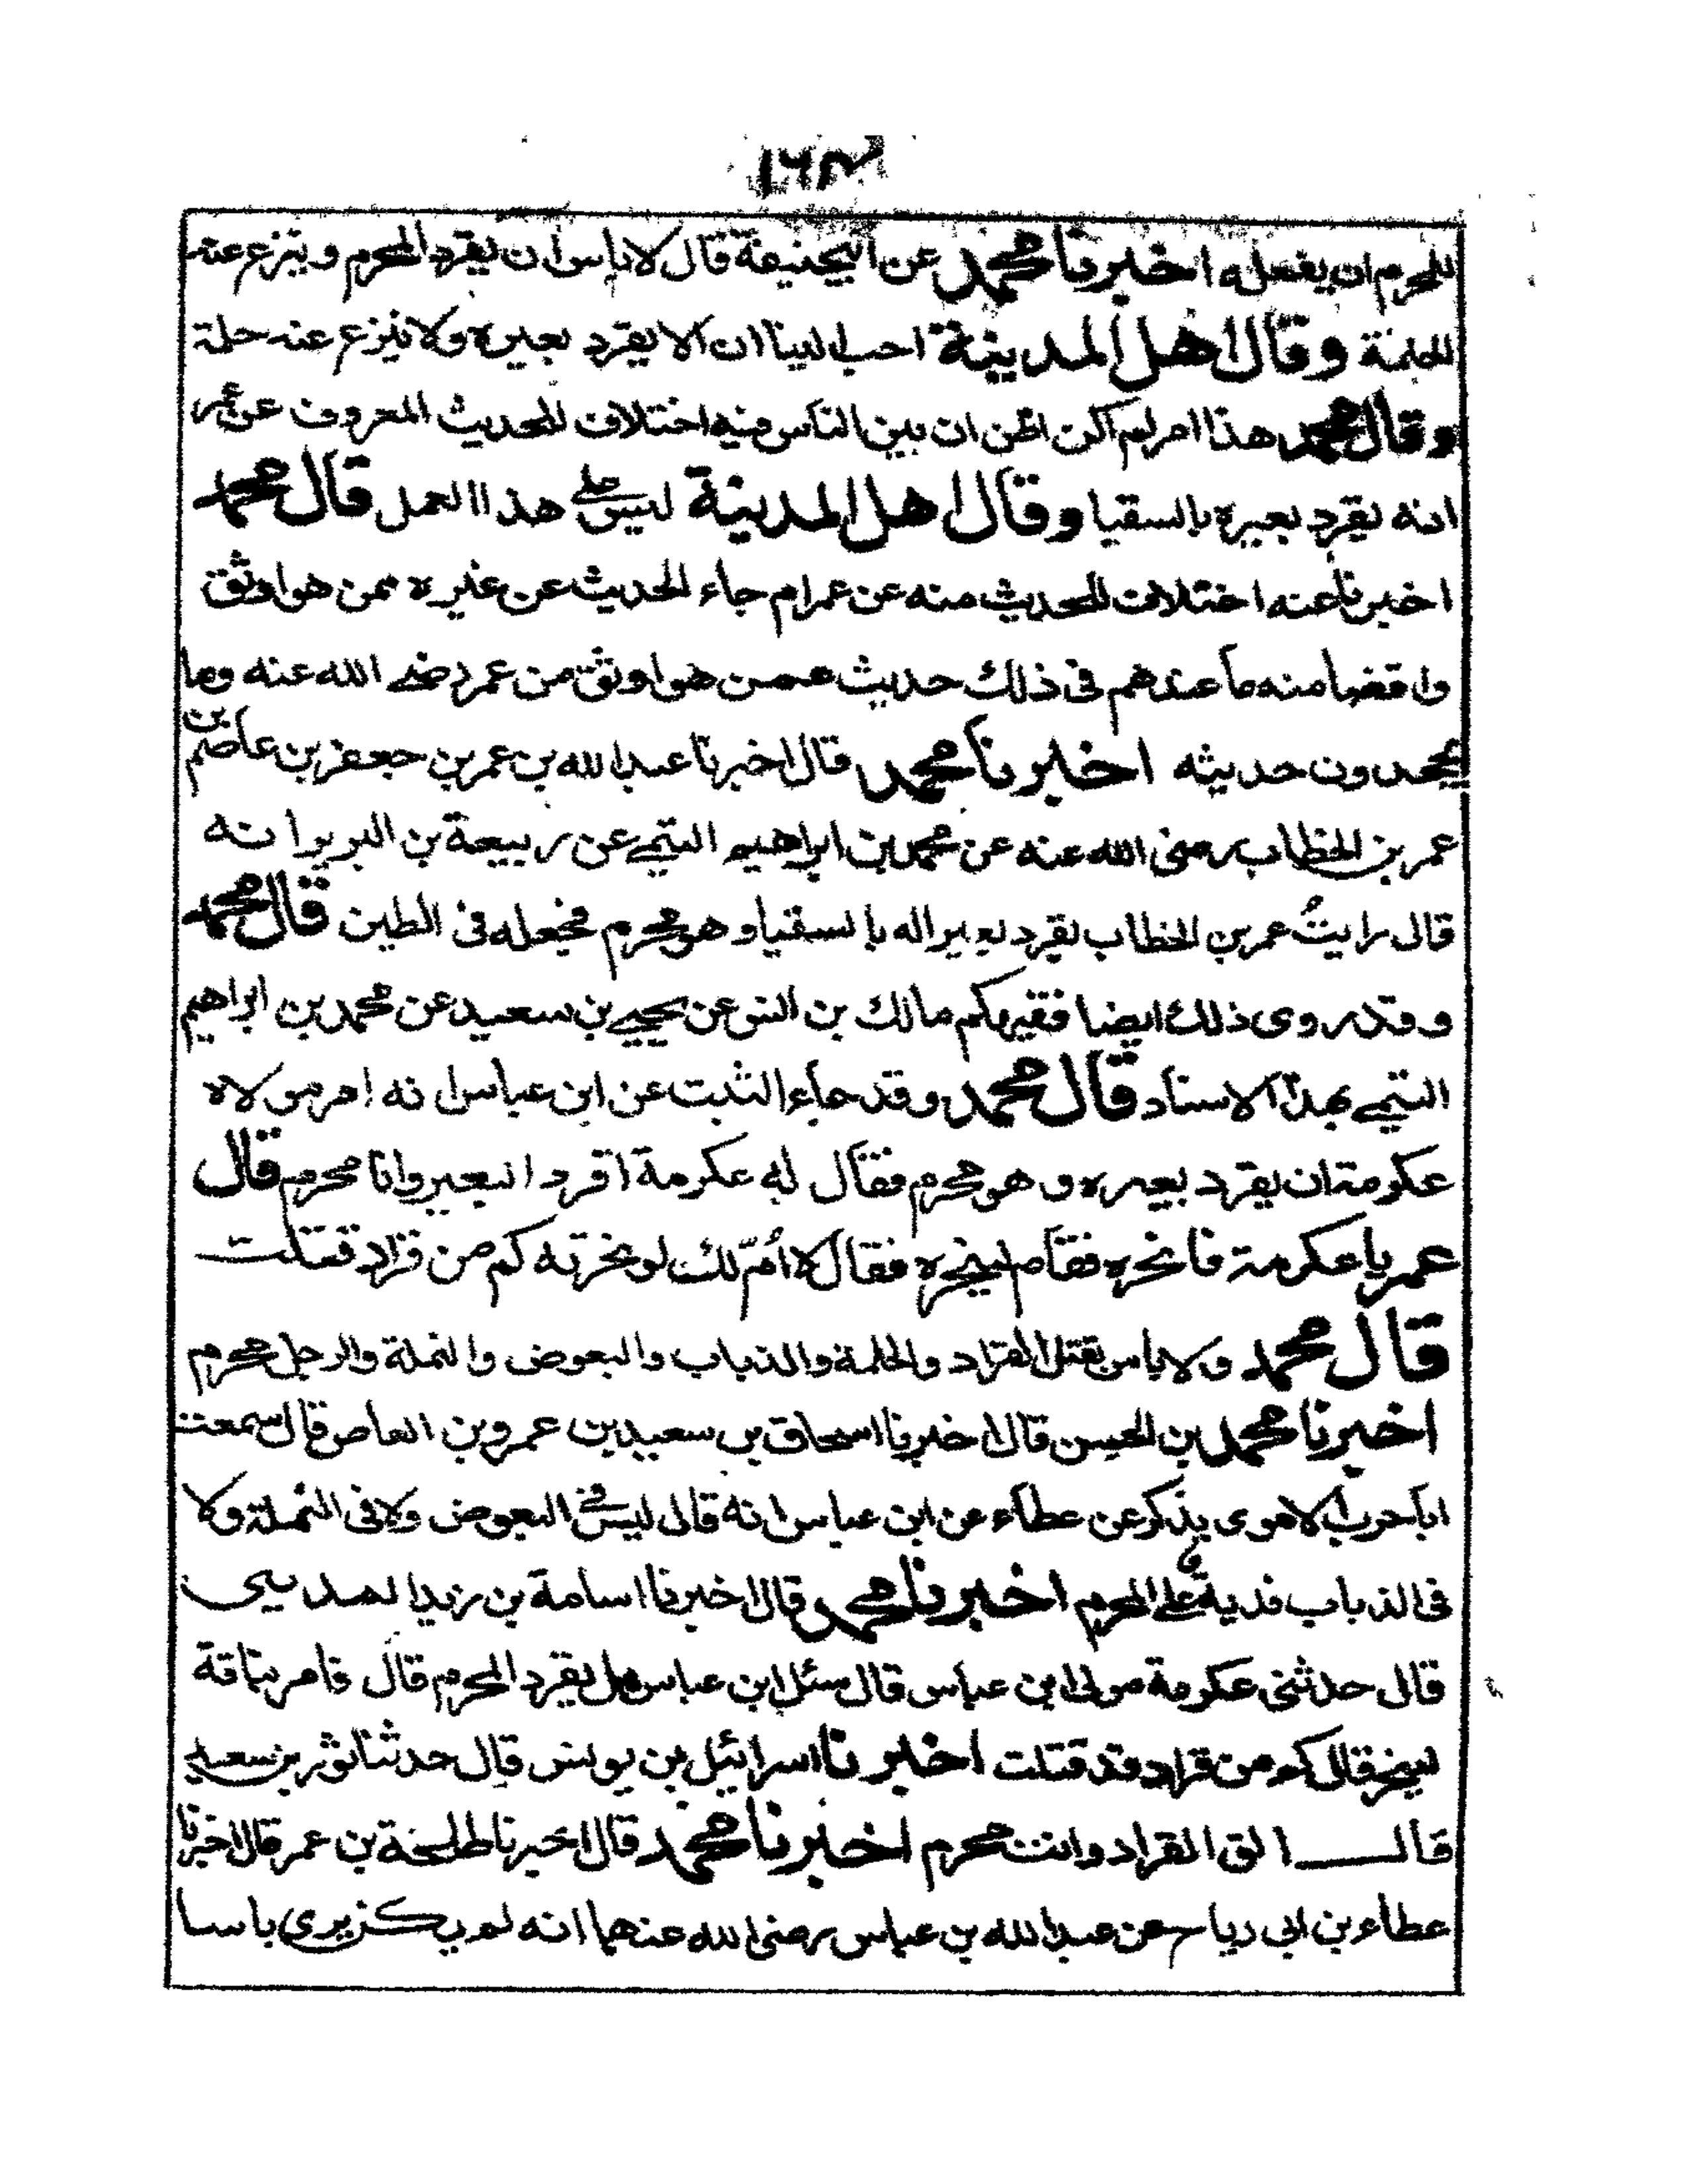 ١٦٣
للمحرم ان يفعله اخبرنا محمد عن ابيحنيفة قال لا باس ان يقرد المحرم وينزع عنه
الحلمة وقال اهل المدينة احب الينا ان لا يقرد بعيره ولا ينزع عنه حلمة
وقال محمد هذا امر لم اكن اظن ان بين الناس فيه اختلاف للحديث المعروف عن عمر
انه يقرد بعيره بالسقيا وقال اهل المدينة ليس على هذا العمل قال محمد
اخبرنا عنه اختلاف للحديث منه عن عمر ام جاء الحديث عن غيره ممن هو اوثق
وا منه ما عندهم في ذلك حديث عمن هو اوثق من عمر رضي الله عنه وما
يجحدون حديثه اخبرنا محمد قال اخبرنا عبد الله بن عمر بن جعفر بن عاصم بن
عمر بن الخطاب رضي الله عنه عن محمد بن ابراهيم التيمي عن ربيعة بن انه
قال رايت عمر بن الخطاب يقرد بعيرا له بالسقيا وهو محرم فجعله في الطين قال محمد
وقد روى ذلك ايضا فقيهكم مالك بن انس عن يحيى بن سعيد عن محمد بن ابراهيم
التيمي بهذا الاسناد قال محمد وقد جاء الثبت عن ابن عباس انه امر مولاه
عكرمة ان يقرد بعيره وهو محرم فقال له عكرمة اقرد البعير وانا محرم قال
عمر يا عكرمة فانحره فقام لينحره فقال لا أمّ لك لو نحرته كم من قراد قتلت
قال محمد ولا باس بقتل القراد والحلمة والذباب والبعوض والنملة والرجل محرم
اخبرنا محمد بن الحسن قال اخبرنا اسحاق بن سعيد بن عمرو بن العاص قال سمعت
ابا حرب الاموى يذكر عن عطاء عن ابن عباس انه قال ليس في البعوض ولا في النملة ولا
في الذباب فدية على المحرم اخبرنا محمد قال اخبرنا اسامة بن زيد المديني
قال حدثنى عكرمة مولى ابن عباس قال سئل ابن عباس هل يقرد المحرم قال فامر بناقة
قال كم من قراد قد قتلت اخبرنا اسرائيل بن يونس قال حدثنا ثور بن سعيد
قال الق القراد وانت محرم اخبرنا محمد قال اخبرنا طلحة بن عمر قال اخبرنا
عطاء بن ابى رباح عن عبد الله بن عباس رضى الله عنهما انه لم يكن يرى باسا